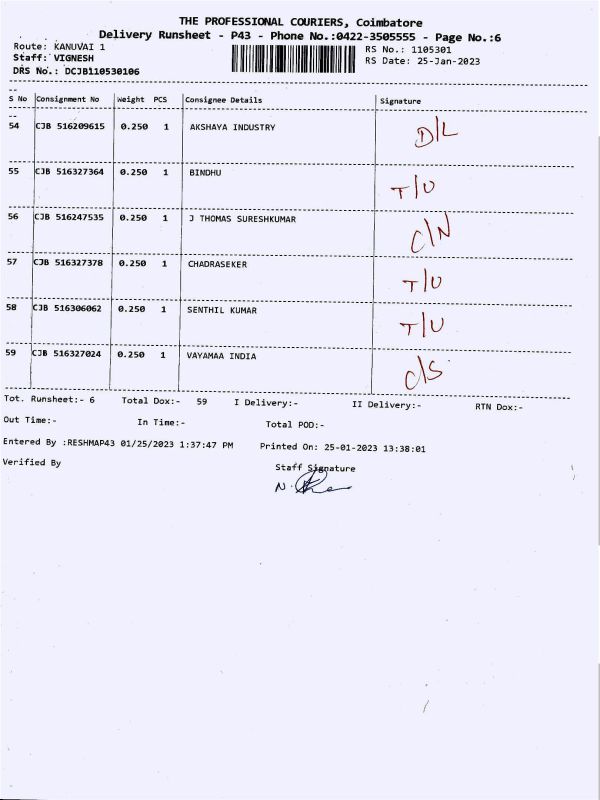 THE PROFESSIONAL COURIERS, Coimbatore
Delivery Runsheet - P43 - Phone No.:0422-3505555 - Page No.:6
Route: KANUVAI 1 RS No.: 1105301
Staff: VIGNESH RS Date: 25-Jan-2023
DRS No.: DCJB110530106
S No Consignment No Weight PCS Consignee Details Signature
54 CJB 516209615 0.250 1 AKSHAYA INDUSTRY D/L
55 CJB 516327364 0.250 1 BINDHU T/U
56 CJB 516247535 0.250 1 J THOMAS SURESHKUMAR C/N
57 CJB 516327378 0.250 1 CHADRASEKER T/U
58 CJB 516306062 0.250 1 SENTHIL KUMAR T/U
59 CJB 516327024 0.250 1 VAYAMAA INDIA C/S
Tot. Runsheet:- 6 Total Dox:- 59 I Delivery:- II Delivery:- RTN Dox:-
Out Time:- In Time:- Total POD:-
Entered By :RESHMAP43 01/25/2023 1:37:47 PM Printed On: 25-01-2023 13:38:01
Verified By Staff Signature
N.